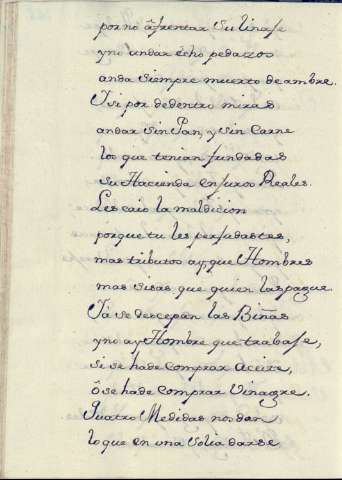 por nó áfrentar Su linaje
y nó andar écho pedazos
anda Siempre muerto de ambre.
I si por dedentro miras
andar Sin Pan, y Sin Carne
los que tenian fundadas
Su Hacienda en juros Reales.
Les caio la maldicion
porque tu les perjudastes,
mas tributos ay, que Hombres
mas sisas que quien las pague.
Iá se descepan las Biñas
y nó ay Hombre que trabaje,
si se hade comprar Aceite,
ó se hade Comprar Vinagre.
Quatro Medidas nos dan
lo que en una Solia darse